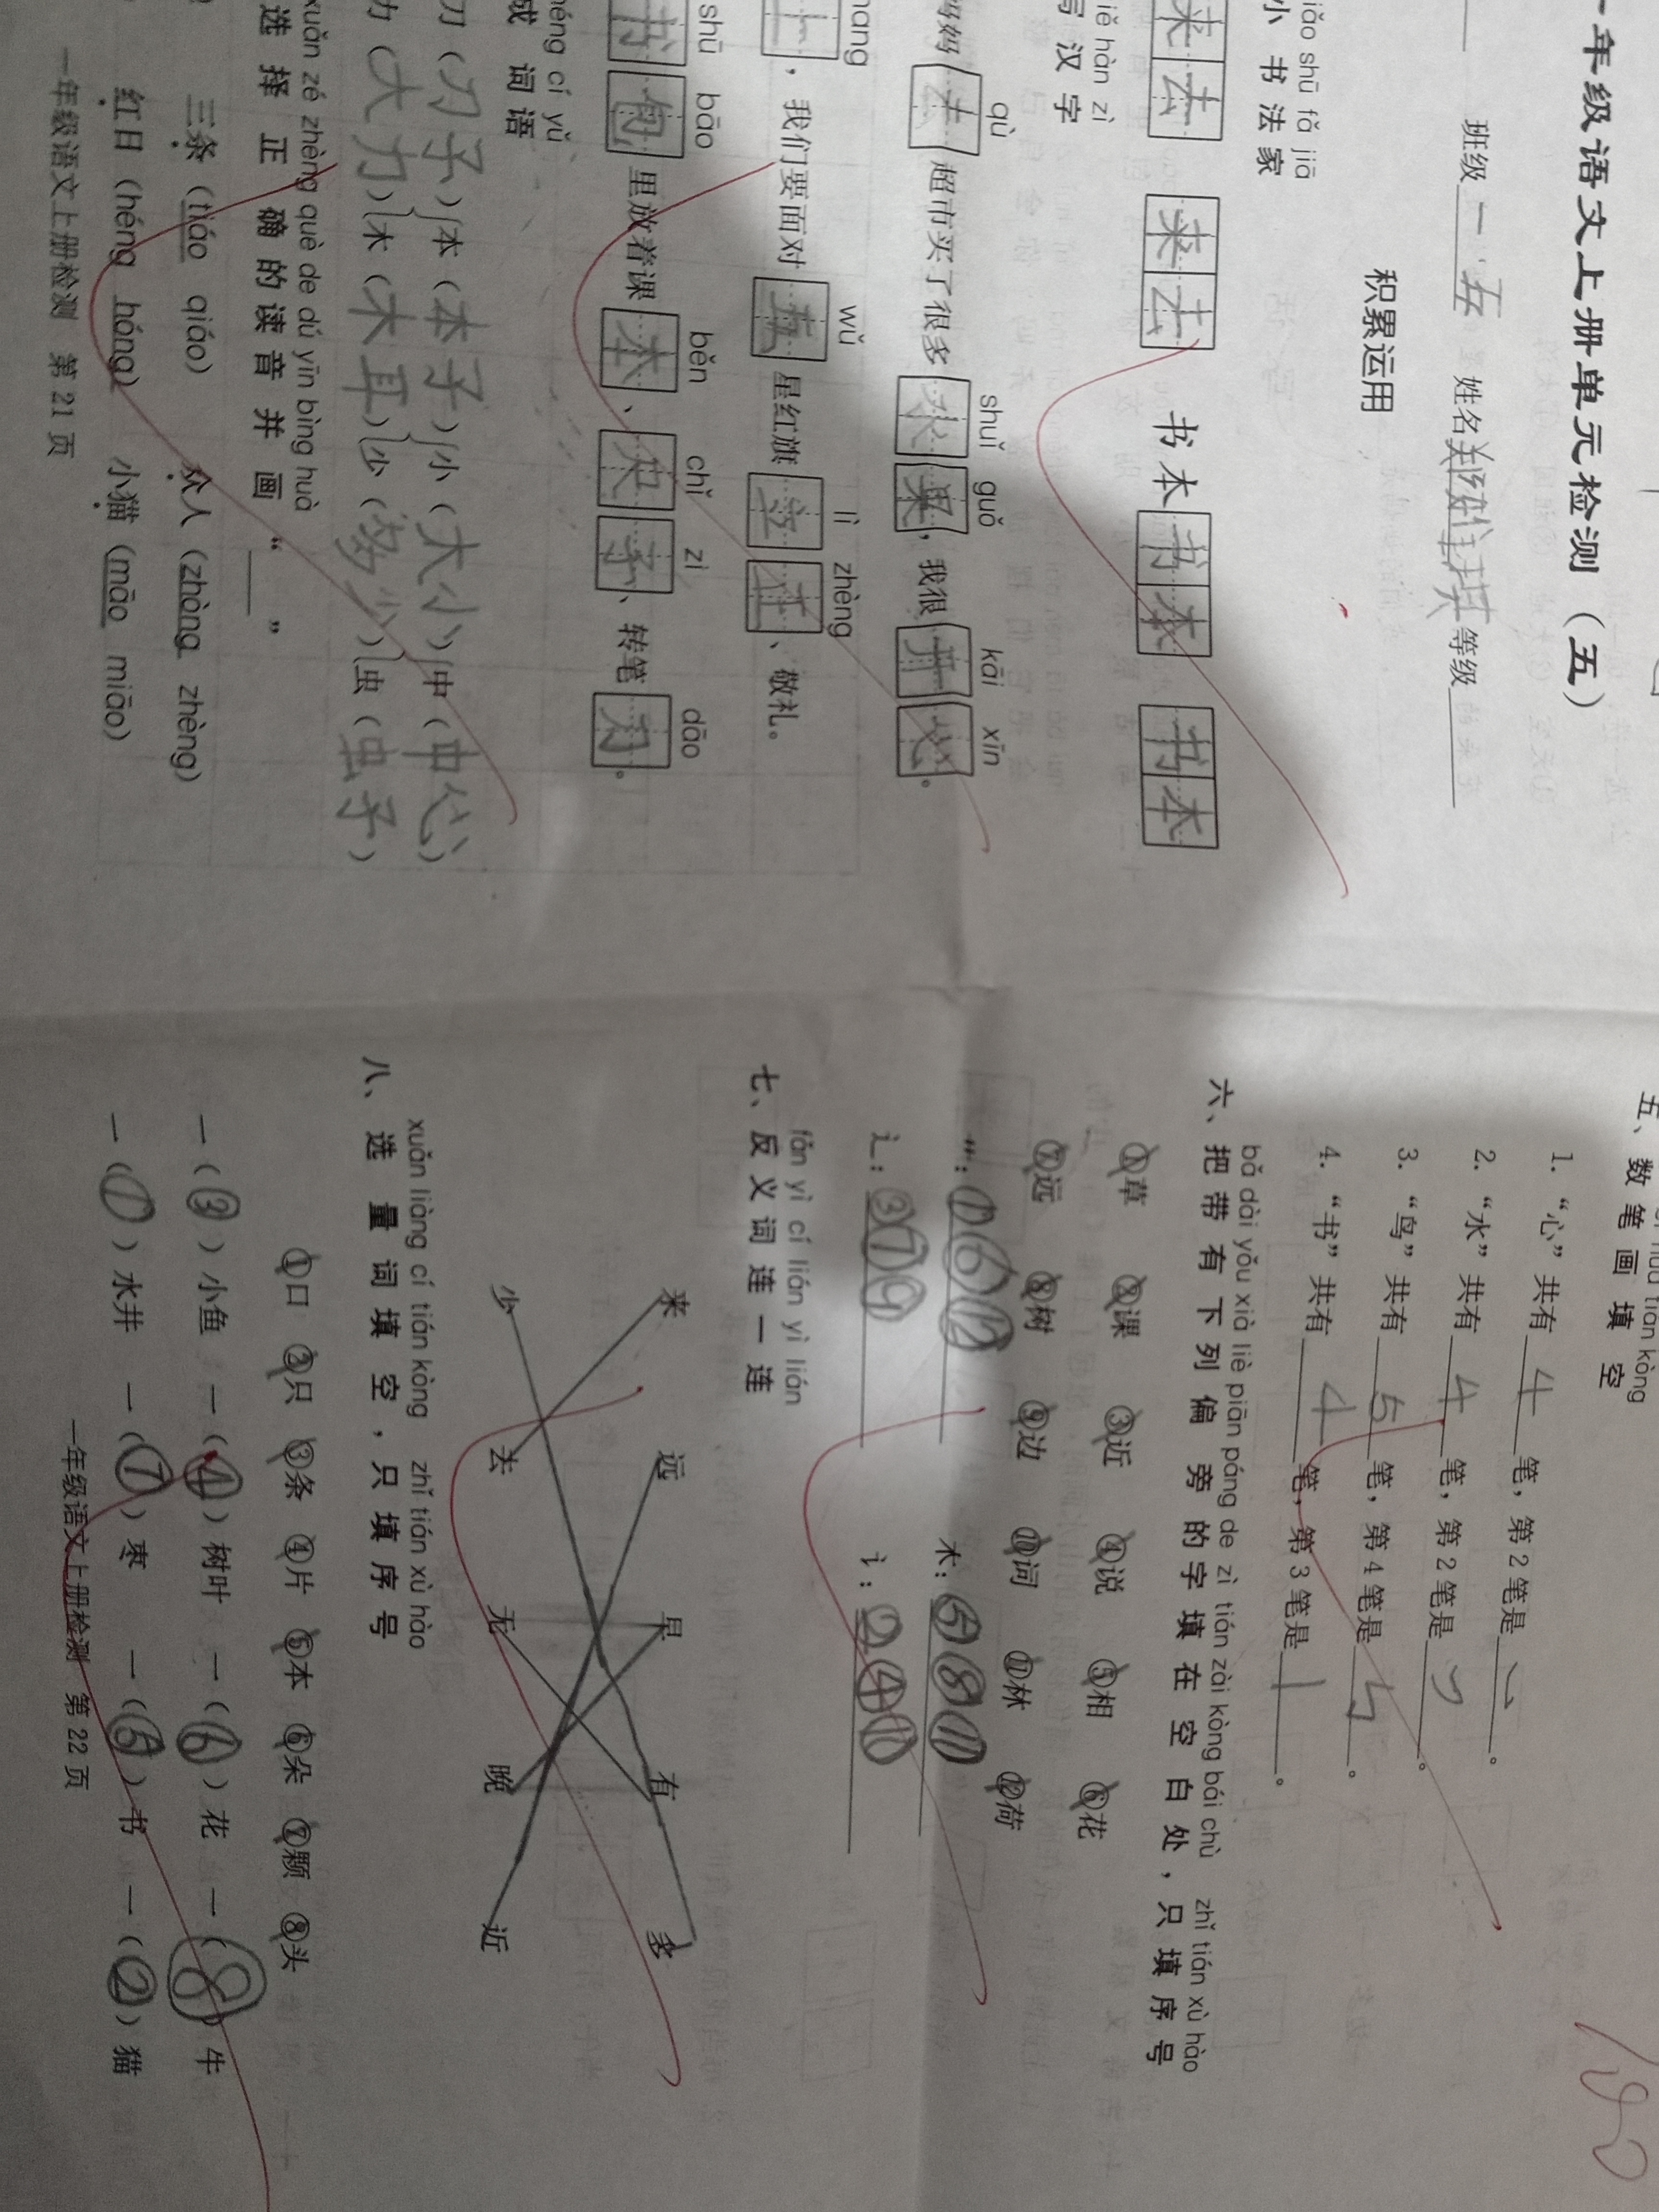 一年级语文上册单元检测（五）
班级一.五 姓名 等级
积累运用
iǎo shū fǎ jiā
小书法家
来去 来去 书本 书本 书本
iě hàn zì
写汉字
qù shuǐ guǒ kāi xīn
妈妈去超市买了很多水果，我很开心。
hang wǔ lì zhèng
上，我们要面对五星红旗立正、敬礼。
shū bāo běn chǐ zi dāo
书包里放着课本、尺子、转笔刀。
héng cí yǔ
成词语
刀（刀子）本（本子）小（大小）中（中心）
力（大力）木（木耳）少（多少）虫（虫子）
xuǎn zé zhèng què de dú yīn bìng huà
选择正确的读音并画“＿＿”
三条（tiáo qiáo） 众人（zhòng zhèng）
红日（héng hóng） 小猫（māo miāo）
一年级语文上册检测 第 21 页
100
tián kòng
五、数笔画填空
1. “心”共有4笔，第2笔是㇃。
2. “水”共有4笔，第2笔是㇇。
3. “鸟”共有5笔，第4笔是㇉。
4. “书”共有4笔，第3笔是丨。
bǎ dài yǒu xià liè piān páng de zì tián zài kòng bái chù zhǐ tián xù hào
六、把带有下列偏旁的字填在空白处，只填序号
①草 ②课 ③近 ④说 ⑤相 ⑥花
⑦远 ⑧树 ⑨边 ⑩词 ⑪林 ⑫荷
艹：①⑥⑫ 木：⑤⑧⑪
辶：③⑦⑨ 讠：②④⑩
fǎn yì cí lián yì lián
七、反义词连一连
来 远 早 有 多
少 去 无 晚 近
xuǎn liàng cí tián kòng zhǐ tián xù hào
八、选量词填空，只填序号
①口 ②只 ③条 ④片 ⑤本 ⑥朵 ⑦颗 ⑧头
一（③）小鱼 一（④）树叶 一（⑥）花 一（⑧）牛
一（①）水井 一（⑦）枣 一（⑤）书 一（②）猫
一年级语文上册检测 第 22 页